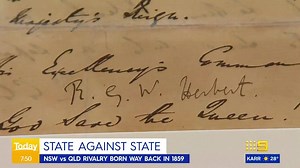 Majesty's Reign.
His Excellency's Command
R. G. W. Herbert.
God Save the Queen!
Today
7:50
STATE AGAINST STATE
NSW vs QLD RIVALRY BORN WAY BACK IN 1859
9
KARR 28°